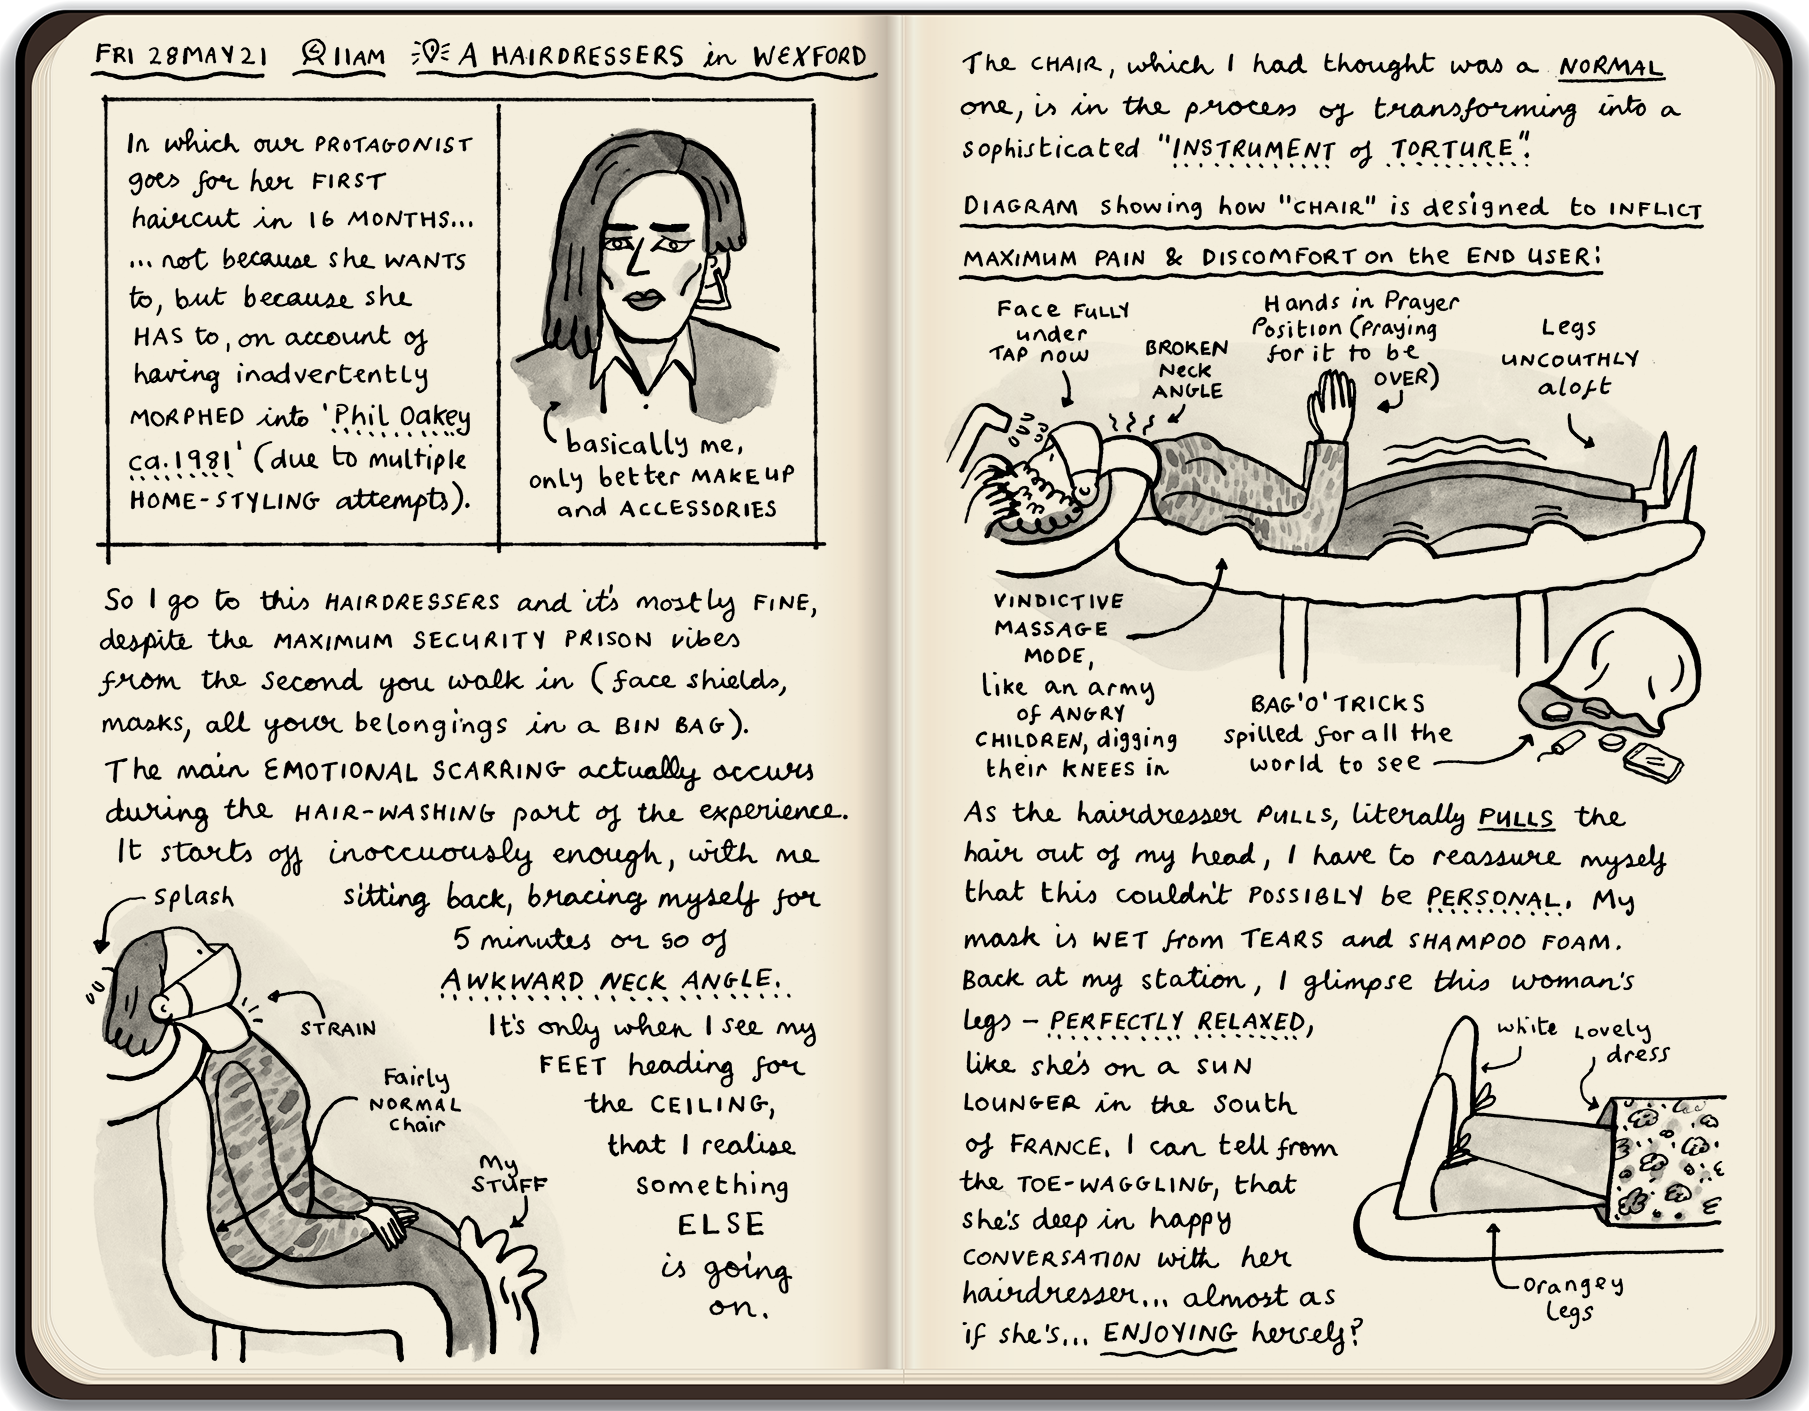 FRI 28MAY21 11AM A HAIRDRESSERS in WEXFORD
In which our PROTAGONIST
goes for her FIRST
haircut in 16 MONTHS...
... not because she WANTS
to, but because she
HAS to, on account of
having inadvertently
MORPHED into 'Phil Oakey
ca. 1981' (due to multiple
HOME-STYLING attempts).
basically me,
only better MAKEUP
and ACCESSORIES
So I go to this HAIRDRESSERS and it's mostly FINE,
despite the MAXIMUM SECURITY PRISON vibes
from the second you walk in (face shields,
masks, all your belongings in a BIN BAG).
The main EMOTIONAL SCARRING actually occurs
during the HAIR-WASHING part of the experience.
It starts off inoccuously enough, with me
sitting back, bracing myself for
5 minutes or so of
AWKWARD NECK ANGLE.
It's only when I see my
FEET heading for
the CEILING,
that I realise
something
ELSE
is going
on.
Splash
STRAIN
Fairly
NORMAL
chair
My
STUFF
The CHAIR, which I had thought was a NORMAL
one, is in the process of transforming into a
sophisticated "INSTRUMENT of TORTURE".
DIAGRAM showing how "CHAIR" is designed to INFLICT
MAXIMUM PAIN & DISCOMFORT on the END USER:
Face FULLY
under
TAP now
BROKEN
Neck
ANGLE
Hands in Prayer
Position (Praying
for it to be
OVER)
Legs
UNCOUTHLY
aloft
VINDICTIVE
MASSAGE
MODE,
like an army
of ANGRY
CHILDREN, digging
their KNEES in
BAG 'O' TRICKS
spilled for all the
world to see
As the hairdresser PULLS, literally PULLS the
hair out of my head, I have to reassure myself
that this couldn't POSSIBLY be PERSONAL. My
mask is WET from TEARS and SHAMPOO FOAM.
Back at my station, I glimpse this woman's
legs – PERFECTLY RELAXED,
like she's on a SUN
LOUNGER in the South
of FRANCE. I can tell from
the TOE-WAGGLING, that
she's deep in happy
CONVERSATION with her
hairdresser... almost as
if she's... ENJOYING herself?
white
Lovely
dress
orangey
legs